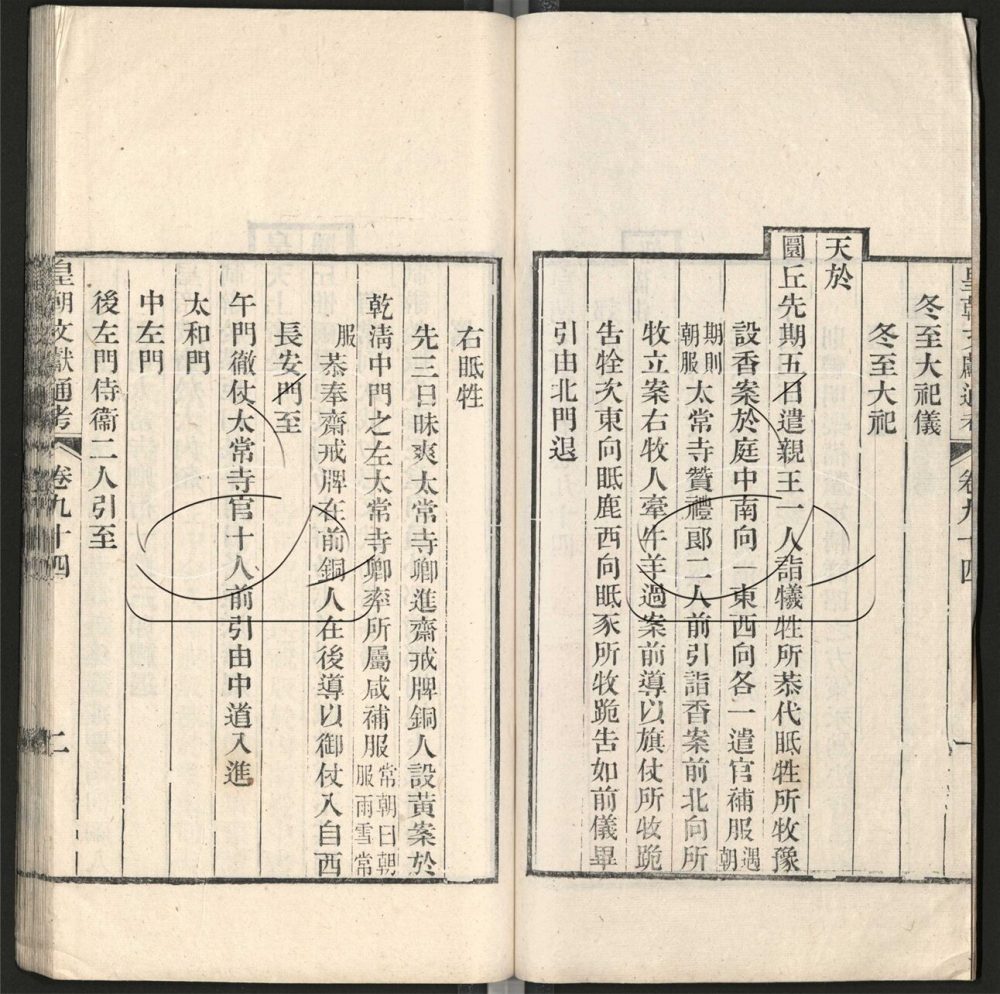 皇朝文獻通考 卷九十四 一
冬至大祀儀
冬至大祀
天於
圜丘先期五日遣親王一人詣犧牲所恭代眡牲所牧豫
設香案於庭中南向一東西向各一遣官補服遇朝
期則朝服太常寺贊禮郞二人前引詣香案前北向所
牧立案右牧人牽牛羊過案前導以旗仗所牧跪
告牷次東向眡鹿西向眡豕所牧跪告如前儀畢
引由北門退
右眡牲
先三日昧爽太常寺卿進齋戒牌銅人設黃案於
乾淸中門之左太常寺卿率所屬咸補服常朝日朝服雨雪常
服恭奉齋戒牌在前銅人在後導以御仗入自西
長安門至
午門徹仗太常寺官十人前引由中道入進
太和門
中左門
後左門侍衞二人引至
皇朝文獻通考 卷九十四 二